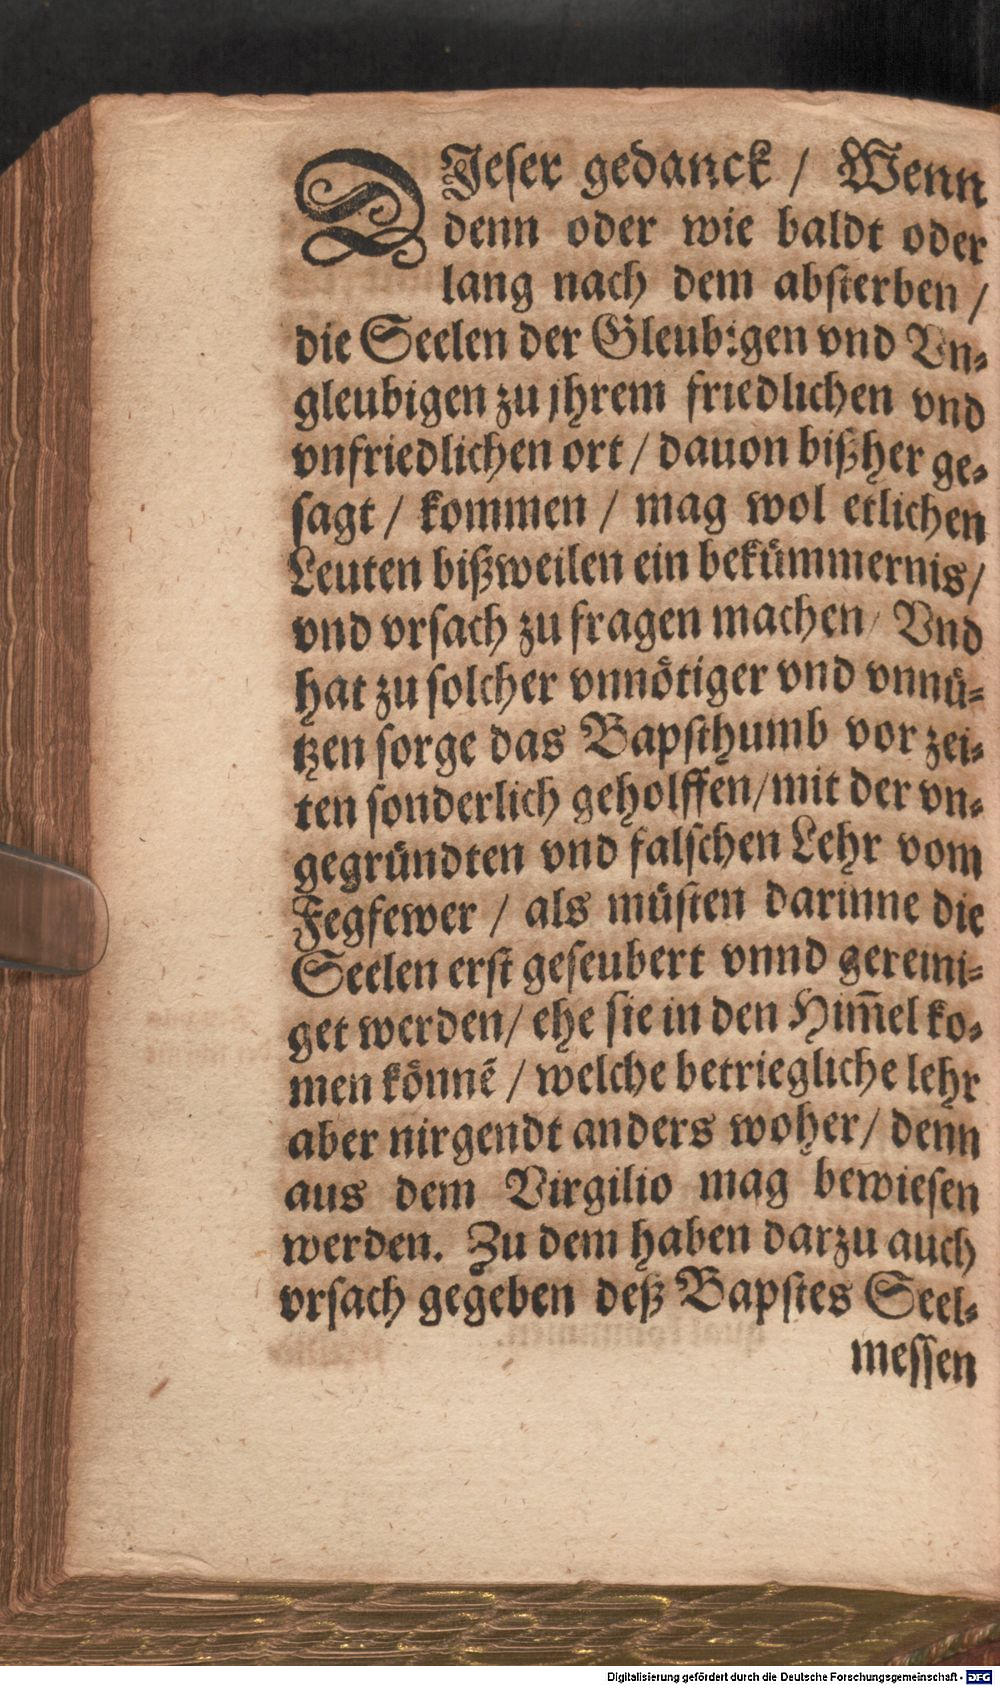 DJeser gedanck / Wenn
denn oder wie baldt oder
lang nach dem absterben /
die Seelen der Gleubigen vnd Vn⸗
gleubigen zu jhrem friedlichen vnd
vnfriedlichen ort / dauon bißher ge⸗
sagt / kommen / mag wol etlichen
Leuten bißweilen ein bekümmernis /
vnd vrsach zu fragen machen / Vnd
hat zu solcher vnnötiger vnd vnnü⸗
tzen sorge das Bapsthumb vor zei⸗
ten sonderlich geholffen / mit der vn⸗
gegründten vnd falschen Lehr vom
Fegfewer / als müsten darinne die
Seelen erst geseubert vnnd gereini⸗
get werden / ehe sie in den Him̅el ko⸗
men könnē / welche betriegliche lehr
aber nirgendt anders woher / denn
aus dem Virgilio mag bewiesen
werden. Zu dem haben darzu auch
vrsach gegeben deß Bapstes Seel⸗
messen
Digitalisierung gefördert durch die Deutsche Forschungsgemeinschaft - DFG